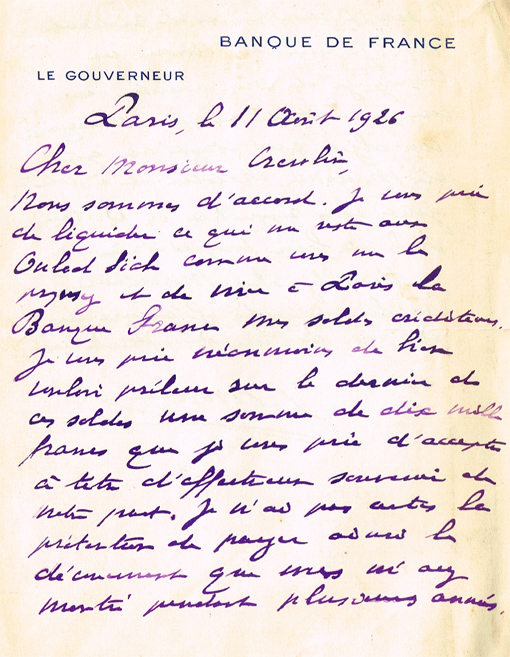 BANQUE DE FRANCE
LE GOUVERNEUR
Paris, le 11 Août 1926
Cher Monsieur
Nous sommes d'accord. Je vous prie
de liquider ce qui me reste aux
Ouled comme vous me le
et de virer à Paris à la
Banque France mes soldes créditeurs.
Je vous prie néanmoins de bien
vouloir prélever sur le dernier de
ces soldes une somme de dix mille
francs que je vous prie d'accepter
à titre d'affectueux souvenir de
notre part. Je n'ai pas certes la
prétention de payer ainsi le
dévouement que vous m'avez
montré pendant plusieurs années.